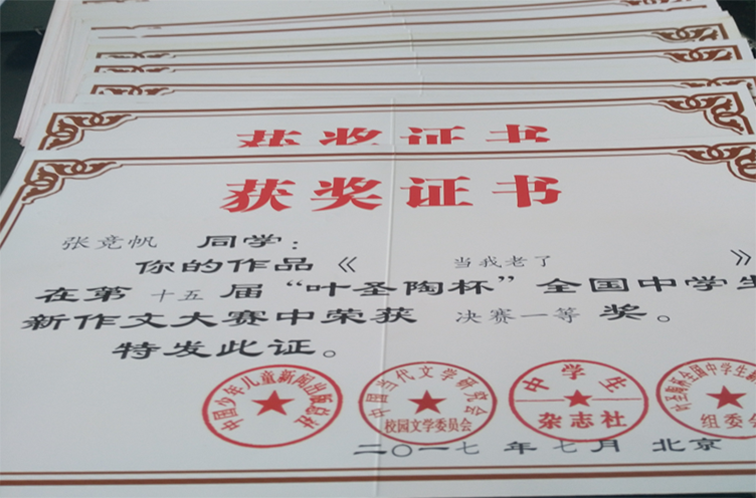 获奖证书
获奖证书
张竞帆 同学：
你的作品《 当我老了 》
在第 十五 届“叶圣陶杯”全国中学生
新作文大赛中荣获 决赛一等 奖。
特发此证。
中国少年儿童新闻出版总社
中国当代文学研究会
校园文学委员会
中学生
杂志社
叶圣陶杯全国中学生新
组委会
二〇一七 年七月 北京